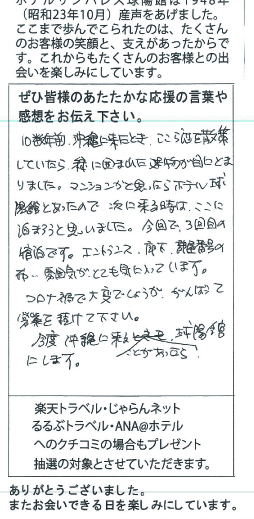 ホテルサンパレス球陽館は1948年
（昭和23年10月）産声をあげました。
ここまで歩んでこられたのは、たくさん
のお客様の笑顔と、支えがあったからで
す。これからもたくさんのお客様との出
会いを楽しみにしています。
ぜひ皆様のあたたかな応援の言葉や
感想をお伝え下さい。
10数年前、沖縄に来たとき、ここら辺を散策
していたら 緑に囲まれた建物が目にとま
りました。マンションかと思ったらホテル球
陽館とあったので 次に来る時は、ここに
泊まろうと思いました。今回で、3回目の
宿泊です。エントランス、廊下、部屋番号の
布、雰囲気がとても気に入っています。
コロナ禍で大変でしょうが、がんばって
営業を続けて下さい。
今度 沖縄に来ることがあったら、球陽館
にします。
楽天トラベル・じゃらんネット
るるぶトラベル・ANA@ホテル
へのクチコミの場合もプレゼント
抽選の対象とさせていただきます。
ありがとうございました。
またお会いできる日を楽しみにしています。